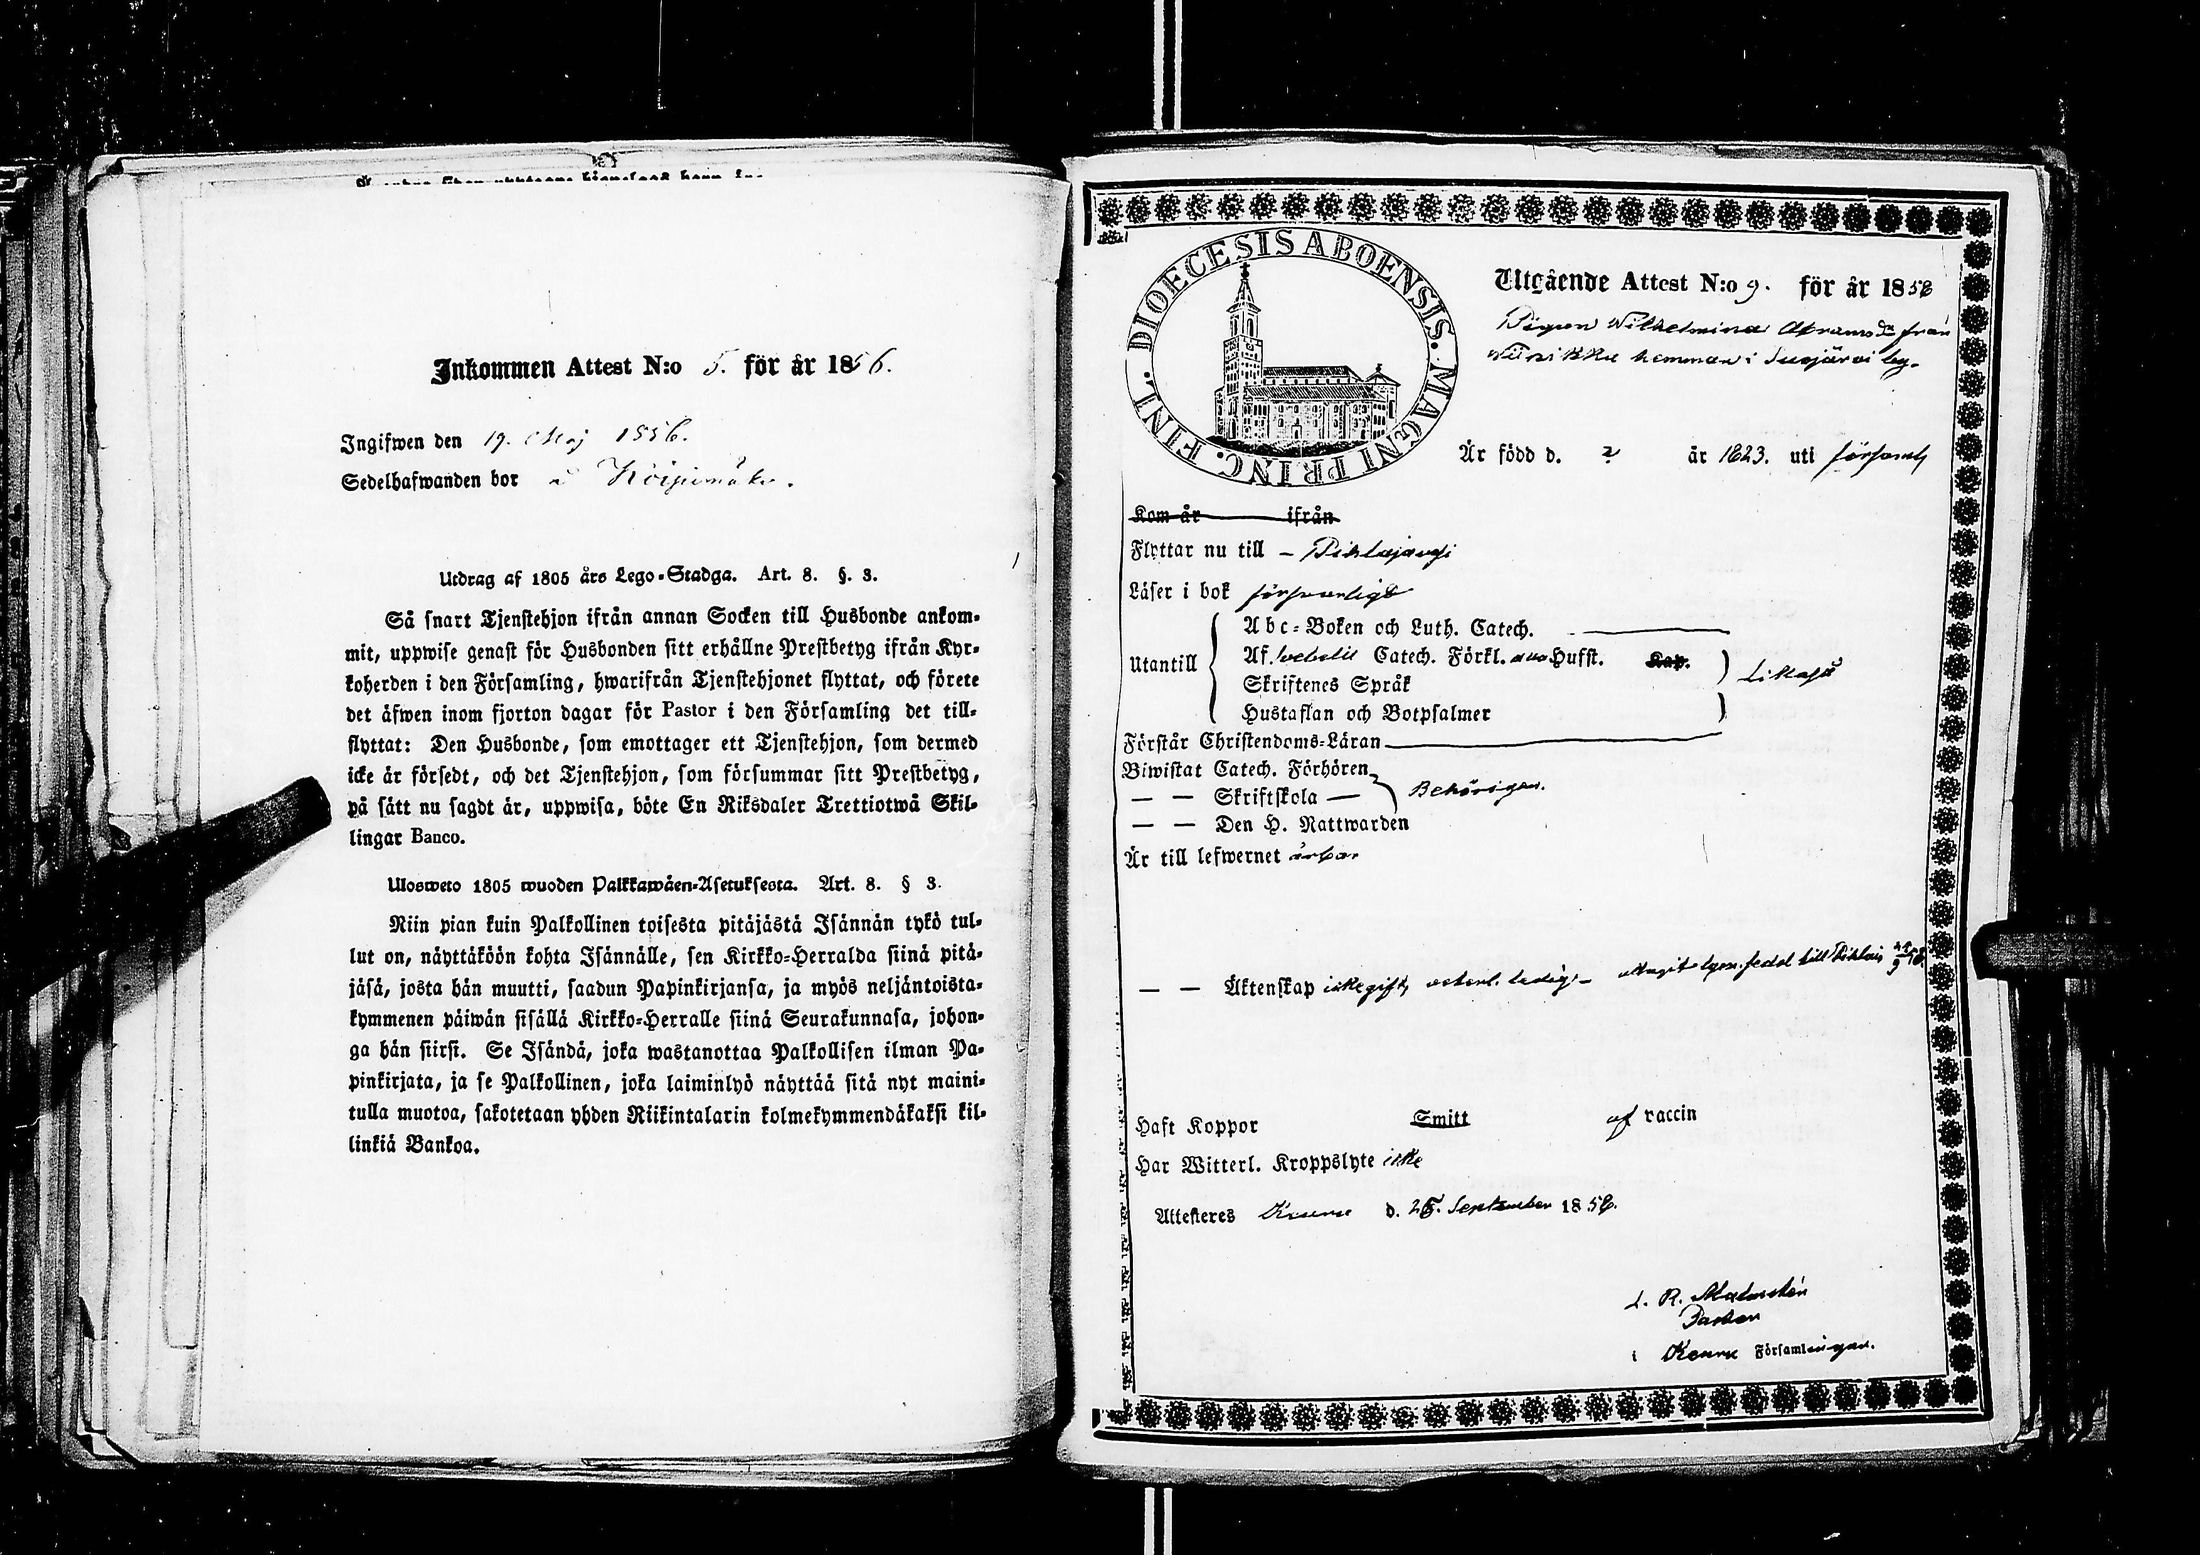 Inkommen Attest N:o 5. för år 1856.
Ingifwen den 19. Maj 1856.
Sedelhafwanden bor å
Utdrag af 1805 års Lego-Stadga. Art. 8. §. 3.
Så snart Tjenstehjon ifrån annan Socken till Husbonde ankom-
mit, uppwise genast för Husbonden sitt erhållne Prestbetyg ifrån Kyr-
koherden i den Församling, hwarifrån Tjenstehjonet flyttat, och förete
det äfwen inom fjorton dagar för Pastor i den Församling det till-
flyttat: Den Husbonde, som emottager ett Tjenstehjon, som dermed
icke är försedt, och det Tjenstehjon, som försummar sitt Prestbetyg,
på sätt nu sagdt är, uppwisa, böte En Riksdaler Trettiotwå Skil-
lingar Banco.
Ulosweto 1805 wuoden Palkkawäen-Asetuksesta. Art. 8. § 3.
Niin pian kuin Palkollinen toisesta pitäjästä Isännän tykö tul-
lut on, näyttäköön kohta Isännälle, sen Kirkko-Herralda siinä pitä-
jäsä, josta hän muutti, saadun Papinkirjansa, ja myös neljäntoista-
kymmenen päiwän sisällä Kirkko-Herralle siinä Seurakunnasa, johon-
ga hän siirsi. Se Isändä, joka wastanottaa Palkollisen ilman Pa-
pinkirjata, ja se Palkollinen, joka laiminlyö näyttää sitä nyt maini-
tulla muotoa, sakotetaan yhden Riikintalarin kolmekymmendäkaksi kil-
linkiä Bankoa.
DIOECESIS ABOENSIS. MAGNI PRINC. FINL.
Utgående Attest N:o 9. för år 1856
Pigan Wilhelmina Abramsdr från
hemman i Suojärvi by.
Är född d. ? år 1823. uti församl
Kom år ifrån
Flyttar nu till - Pihlajavesi
Läser i bok försvarligt
Utantill
Abc-Boken och Luth. Catech.
Af Catech. Förkl. Hufst. Kap.
Skriftenes Språk Likaså
Hustaflan och Botpsalmer
Förstår Christendoms-Läran
Biwistat Catech. Förhören
— — Skriftskola — Behörigen.
— — Den H. Nattwarden
Är till lefwernet ärbar
— — Äktenskap icke gift, ledig - till
Haft Koppor Smitt af vaccin
Har Witterl. Kroppslyte icke
Attesteres Keuru d. 25. September 1856.
L. R. Malmstén
Pastor
i Keuru Församlingen.